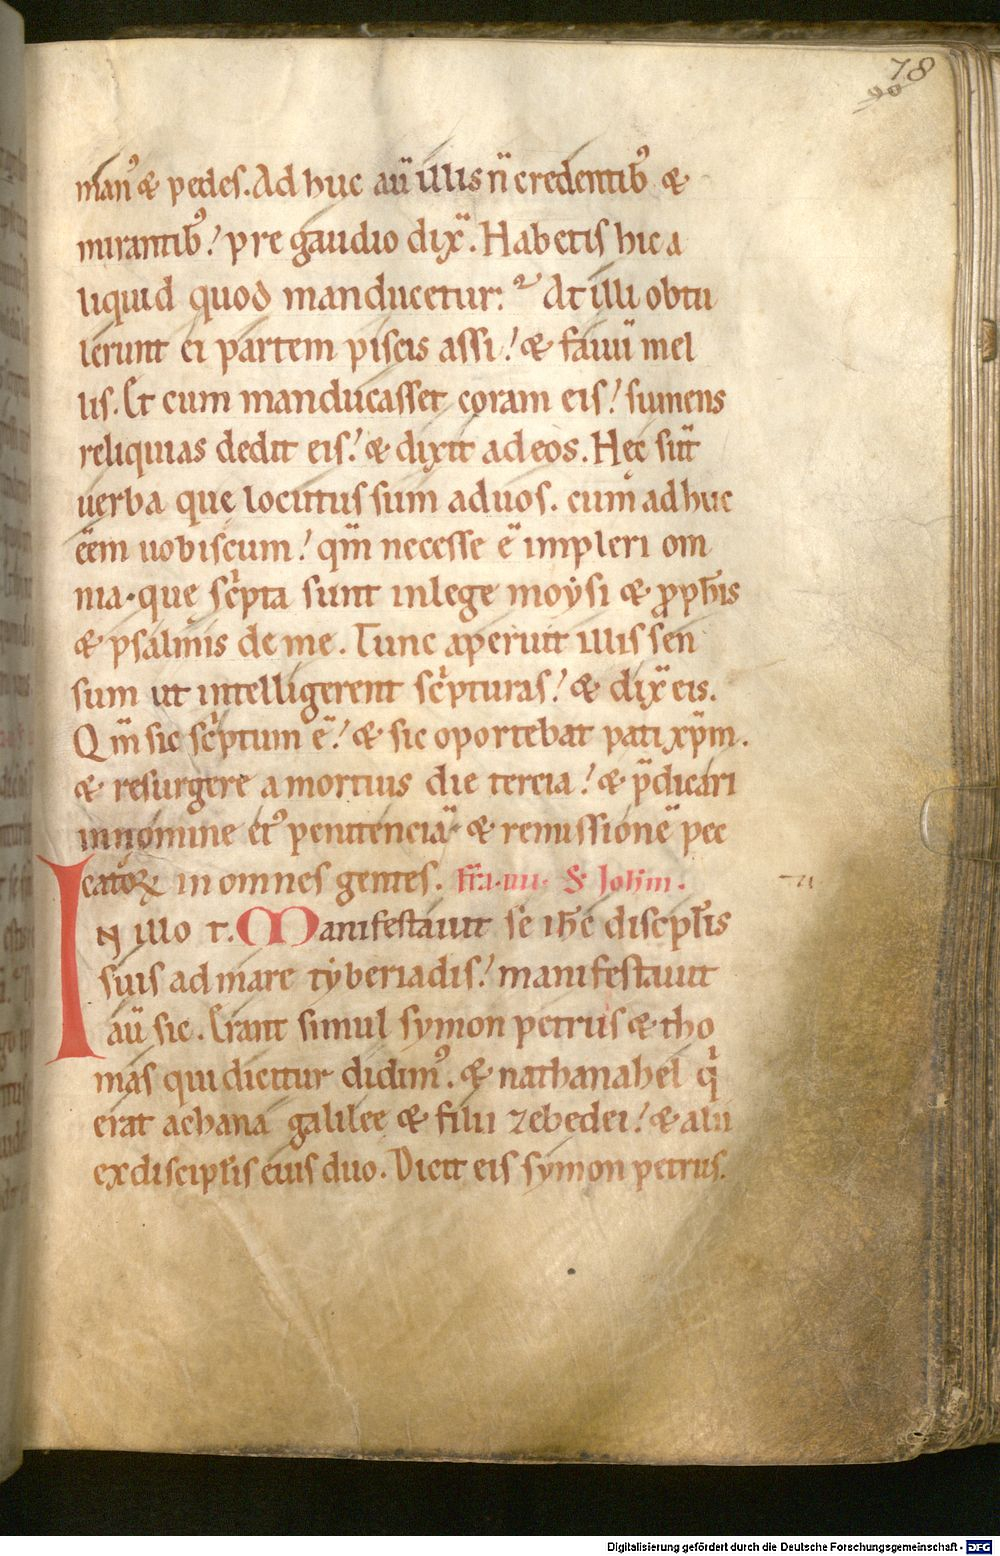 78
90
manꝰ & pedes. Ad huc aū illis n̄ credentibꝰ &
mirantibꝰ! pre gaudio dix̄. Habetis hic a
liquid quod manducetur. At illi obtu
lerunt ei partem piscis assi! & fauū mel
lis. Et cum manducasset coram eis! sumens
reliquias dedit eis! & dixit ad eos. Hęc sūt
uerba quę locutus sum ad uos. cum adhuc
ēēm uobiscum! qm̄ necesse ē impleri om
nia que sc̓pta sunt in lege moysi & ꝓph̄is
& psalmis de me. Tunc aperuit illis sen
sum ut intelligerent sc̓pturas! & dix̄ eis.
Qm̄ sic sc̓ptum ē! & sic oportebat pati xp̄m.
& resurgere a mortuis die tercia! & p̄dicari
in nomine eiꝰ penitenciā & remissionē pec
catoꝝ in omnes gentes. Fr̄a. iiii. S. Joh̄m.
IN illo t. Manifestauit se ih̄c discipl̄is
suis ad mare tyberiadis! manifestauit
aū sic. Erant simul symon petrus & tho
mas qui dicitur didimꝰ. & nathanahel q̓
erat a chana galilee & filii zebedei! & alii
ex discipl̄is eius duo. Dicit eis symon petrus.
Digitalisierung gefördert durch die Deutsche Forschungsgemeinschaft - DFG